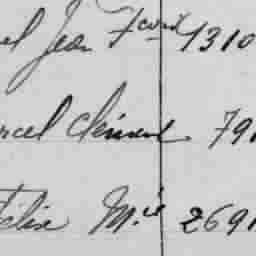 el Jean F 1310
rcel Clément 791
Félix M.ie 2691